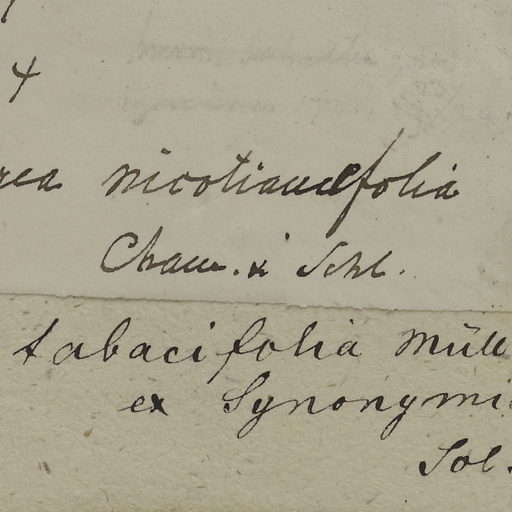 4
rea nicotianæfolia
Cham. & Schl.
tabacifolia Müll
ex Synonymi
Sol.